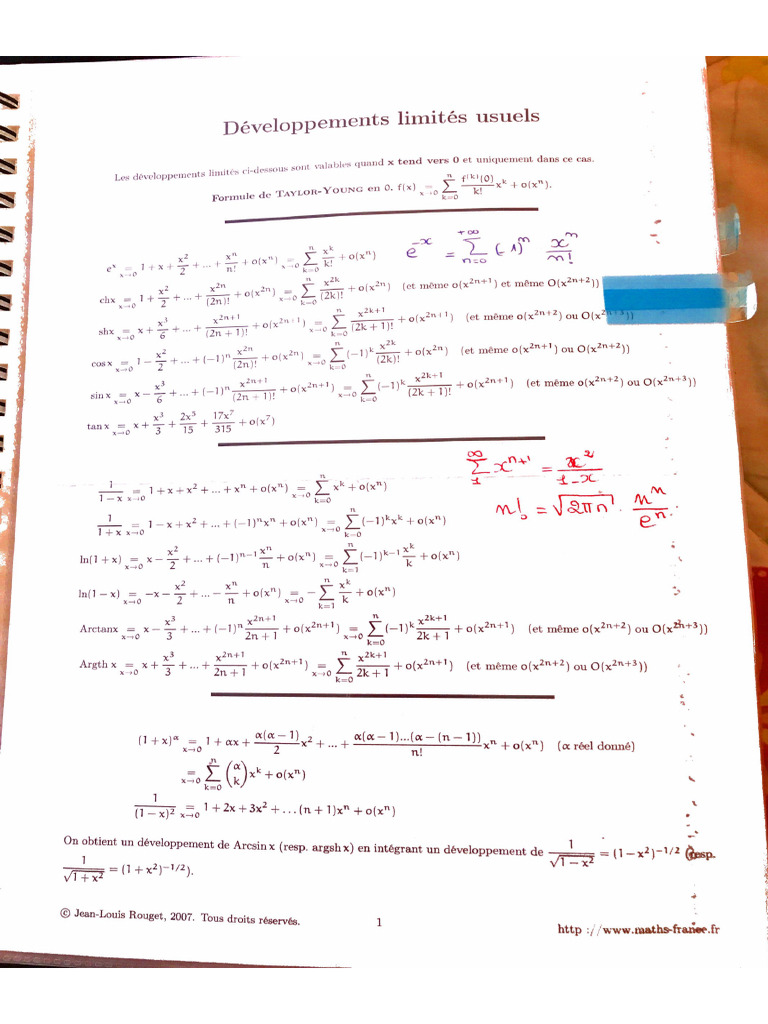 Développements limités usuels
Les développements limités ci-dessous sont valables quand x tend vers 0 et uniquement dans ce cas.
Formule de TAYLOR-YOUNG en 0. f(x) =_{x→0} ∑_{k=0}^{n} f^{(k)}(0)/k! x^k + o(x^n).
e^{-x} = ∑_{n=0}^{+∞} (-1)^n x^n/n!
e^x =_{x→0} 1 + x + x^2/2 + ... + x^n/n! + o(x^n) =_{x→0} ∑_{k=0}^{n} x^k/k! + o(x^n)
chx =_{x→0} 1 + x^2/2 + ... + x^{2n}/(2n)! + o(x^{2n}) =_{x→0} ∑_{k=0}^{n} x^{2k}/(2k)! + o(x^{2n}) (et même o(x^{2n+1}) et même O(x^{2n+2}))
shx =_{x→0} x + x^3/6 + ... + x^{2n+1}/(2n+1)! + o(x^{2n+1}) =_{x→0} ∑_{k=0}^{n} x^{2k+1}/(2k+1)! + o(x^{2n+1}) (et même o(x^{2n+2}) ou O(x^{2n+3}))
cos x =_{x→0} 1 − x^2/2 + ... + (−1)^n x^{2n}/(2n)! + o(x^{2n}) =_{x→0} ∑_{k=0}^{n} (−1)^k x^{2k}/(2k)! + o(x^{2n}) (et même o(x^{2n+1}) ou O(x^{2n+2}))
sin x =_{x→0} x − x^3/6 + ... + (−1)^n x^{2n+1}/(2n+1)! + o(x^{2n+1}) =_{x→0} ∑_{k=0}^{n} (−1)^k x^{2k+1}/(2k+1)! + o(x^{2n+1}) (et même o(x^{2n+2}) ou O(x^{2n+3}))
tan x =_{x→0} x + x^3/3 + 2x^5/15 + 17x^7/315 + o(x^7)
∑_{1}^{∞} x^{n+1} = x^2/1-x
n! = √2πn · n^n/e^n.
1/1−x =_{x→0} 1 + x + x^2 + ... + x^n + o(x^n) =_{x→0} ∑_{k=0}^{n} x^k + o(x^n)
1/1+x =_{x→0} 1 − x + x^2 + ... + (−1)^n x^n + o(x^n) =_{x→0} ∑_{k=0}^{n} (−1)^k x^k + o(x^n)
ln(1 + x) =_{x→0} x − x^2/2 + ... + (−1)^{n−1} x^n/n + o(x^n) =_{x→0} ∑_{k=1}^{n} (−1)^{k−1} x^k/k + o(x^n)
ln(1 − x) =_{x→0} −x − x^2/2 + ... − x^n/n + o(x^n) =_{x→0} − ∑_{k=1}^{n} x^k/k + o(x^n)
Arctanx =_{x→0} x − x^3/3 + ... + (−1)^n x^{2n+1}/2n+1 + o(x^{2n+1}) =_{x→0} ∑_{k=0}^{n} (−1)^k x^{2k+1}/2k+1 + o(x^{2n+1}) (et même o(x^{2n+2}) ou O(x^{2n+3}))
Argth x =_{x→0} x + x^3/3 + ... + x^{2n+1}/2n+1 + o(x^{2n+1}) =_{x→0} ∑_{k=0}^{n} x^{2k+1}/2k+1 + o(x^{2n+1}) (et même o(x^{2n+2}) ou O(x^{2n+3}))
(1 + x)^α =_{x→0} 1 + αx + α(α − 1)/2 x^2 + ... + α(α − 1)...(α − (n − 1))/n! x^n + o(x^n) (α réel donné)
=_{x→0} ∑_{k=0}^{n} (α k) x^k + o(x^n)
1/(1 − x)^2 =_{x→0} 1 + 2x + 3x^2 + ... (n + 1)x^n + o(x^n)
On obtient un développement de Arcsin x (resp. argsh x) en intégrant un développement de 1/√1 − x^2 = (1 − x^2)^{−1/2} (resp.
1/√1 + x^2 = (1 + x^2)^{−1/2}).
© Jean-Louis Rouget, 2007. Tous droits réservés.
1
http ://www.maths-france.fr